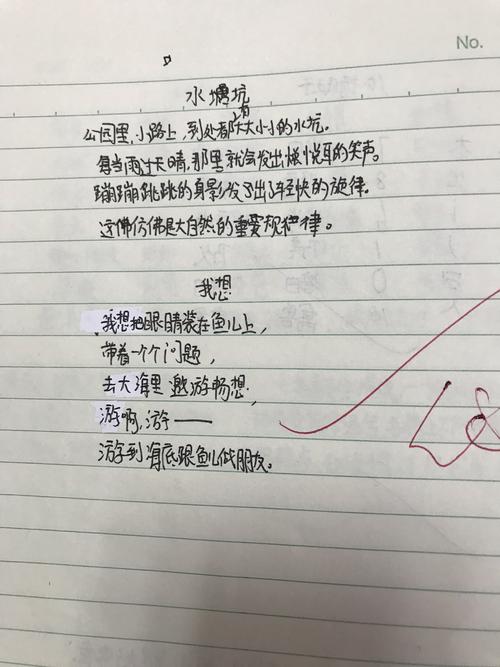 No.
水塘坑
公园里,小路上,到处都有大大小小的水坑。
每当雨过天晴,那里就会发出悦耳的笑声。
蹦蹦跳跳的身影发了出了轻快的旋律。
这佛仿佛是大自然的重要规律。
我想
我想把眼睛装在鱼儿上,
带着一个个问题,
去大海里遨游畅想,
游啊,游——
游到海底跟鱼儿做朋友。